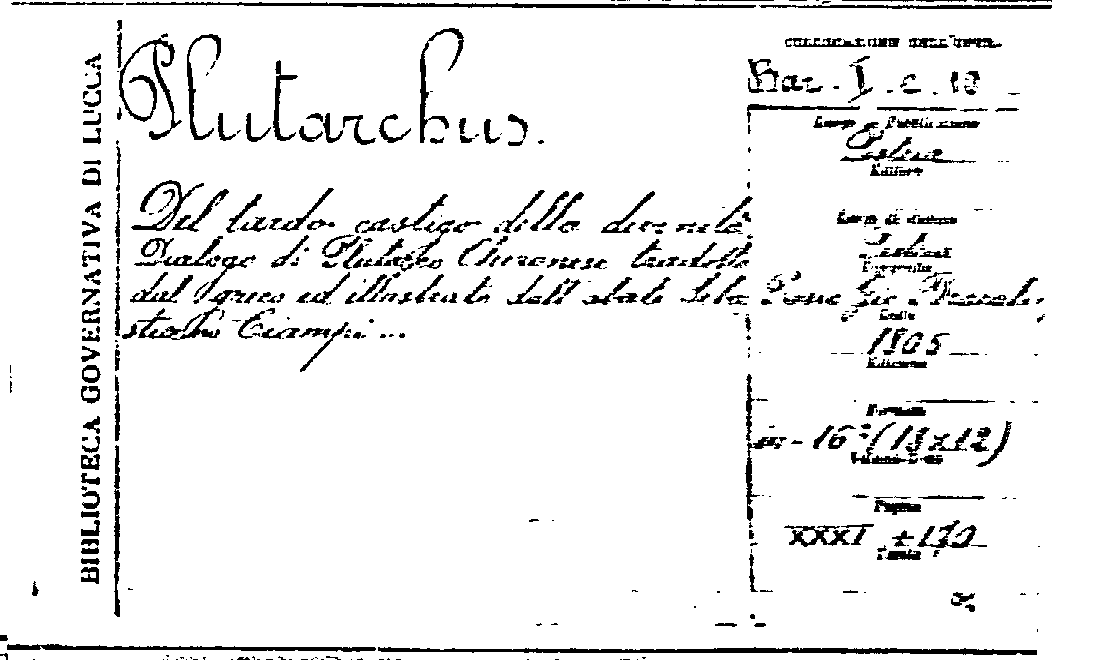 BIBLIOTECA GOVERNATIVA DI LUCCA
Plutarchus.
Del tardo castigo della divinità.
Dialogo di Plutarco Cheronese tradotto
dal greco ed illustrato dall'abate
Ciampi ...
COLLOCAZIONE DELL'OPERA
Bar. I. c. 10
Luogo di Pubblicazione
Editore
Luogo di stampa
Data
1805
Edizione
Formato
in-16° (18x12)
Pagine
XXXI + 170
Tavole